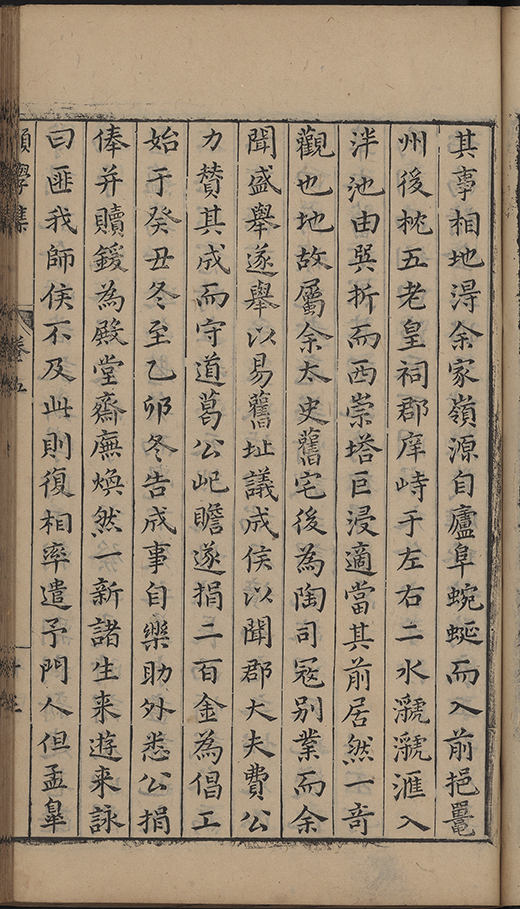 其事相地淂余家嶺源自廬阜蜿蜒而入前挹鼍
州後枕五老皇祠郡庠峙于左右二水㶁㶁滙入
泮池由巽折而西崇塔巨浸適當其前居然一竒
觀也地故屬余太史舊宅後為陶司冦别業而余
聞盛舉遂舉以易舊址議成侯以聞郡大夫費公
力賛其成而守道葛公屺瞻遂捐二百金為倡工
始于癸丑冬至乙卯冬告成事自樂助外悉公捐
俸并贖鍰為殿堂齋廡煥然一新諸生来遊来詠
曰匪我師侯不及此則復相率遣予門人但孟臯
學集
卷五